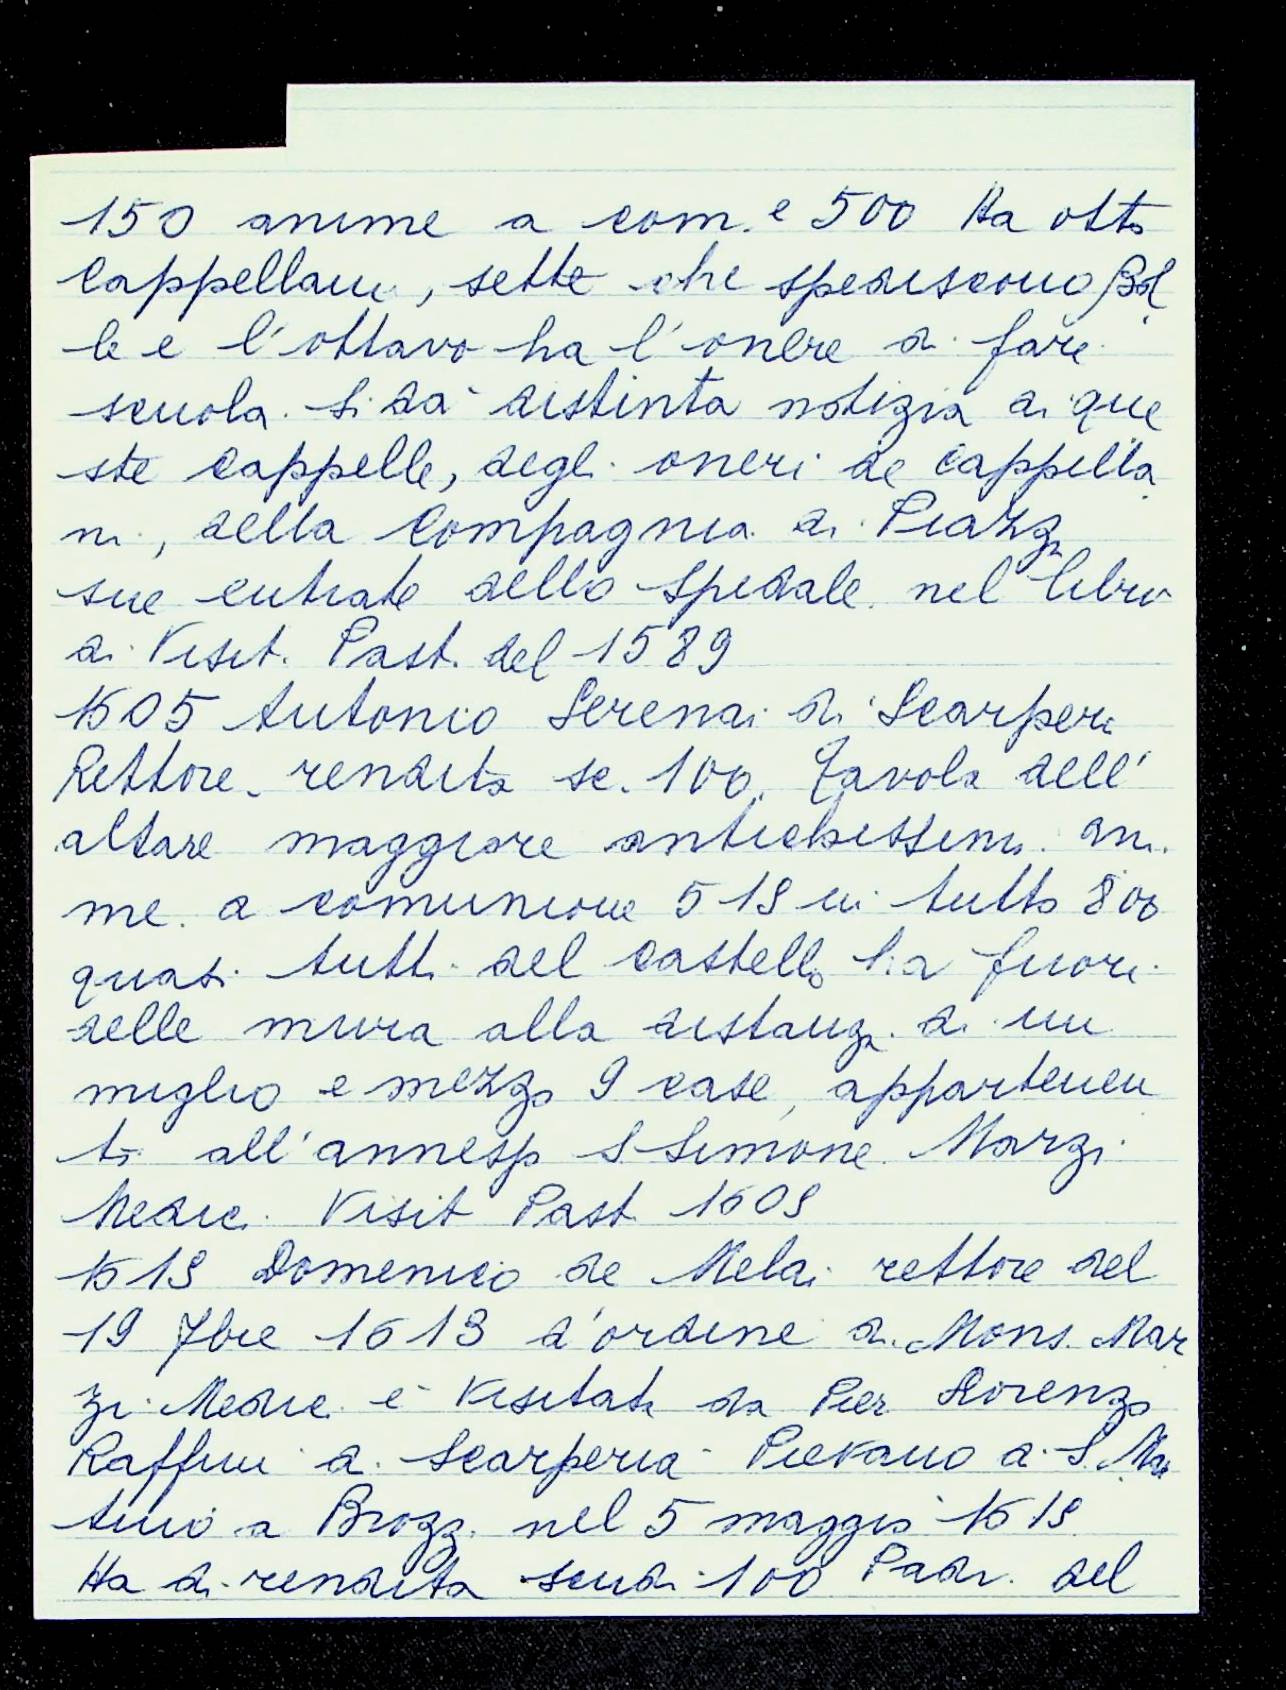 150 anime a com. e 500 Ha otto
Cappellani, sette che spediscono Bol
le e l'ottavo ha l'onere di fare
scuola. Si dà distinta notizia di que
ste cappelle, degli oneri de cappella
ni, della Compagnia di Piazza
sue entrate dello spedale nel libro
di Visit. Past. del 1589
1605 Antonio Serenai di Scarperi
Rettore. rendita sc. 100. Tavola dell'
altare maggiore antichissimi. ani.
me a comunione 519 in tutto 800
quasi tutti del castello ha fuori
delle mura alla distanza di un
miglio e mezzo 9 case, apparteneu
ti all'annesso S. Simone. Marzi
Medici. Visit Past 1609
1619 Domenico de Melai rettore del
19 7bre 1613 d'ordine di Mons. Mar
zi Medici è visitata da Pier Lorenzo
Raffini di Scarperia Pievano a S. Mar
tino a Brozzi nel 5 maggio 1619
Ha di rendita scudi 100 Padr. del